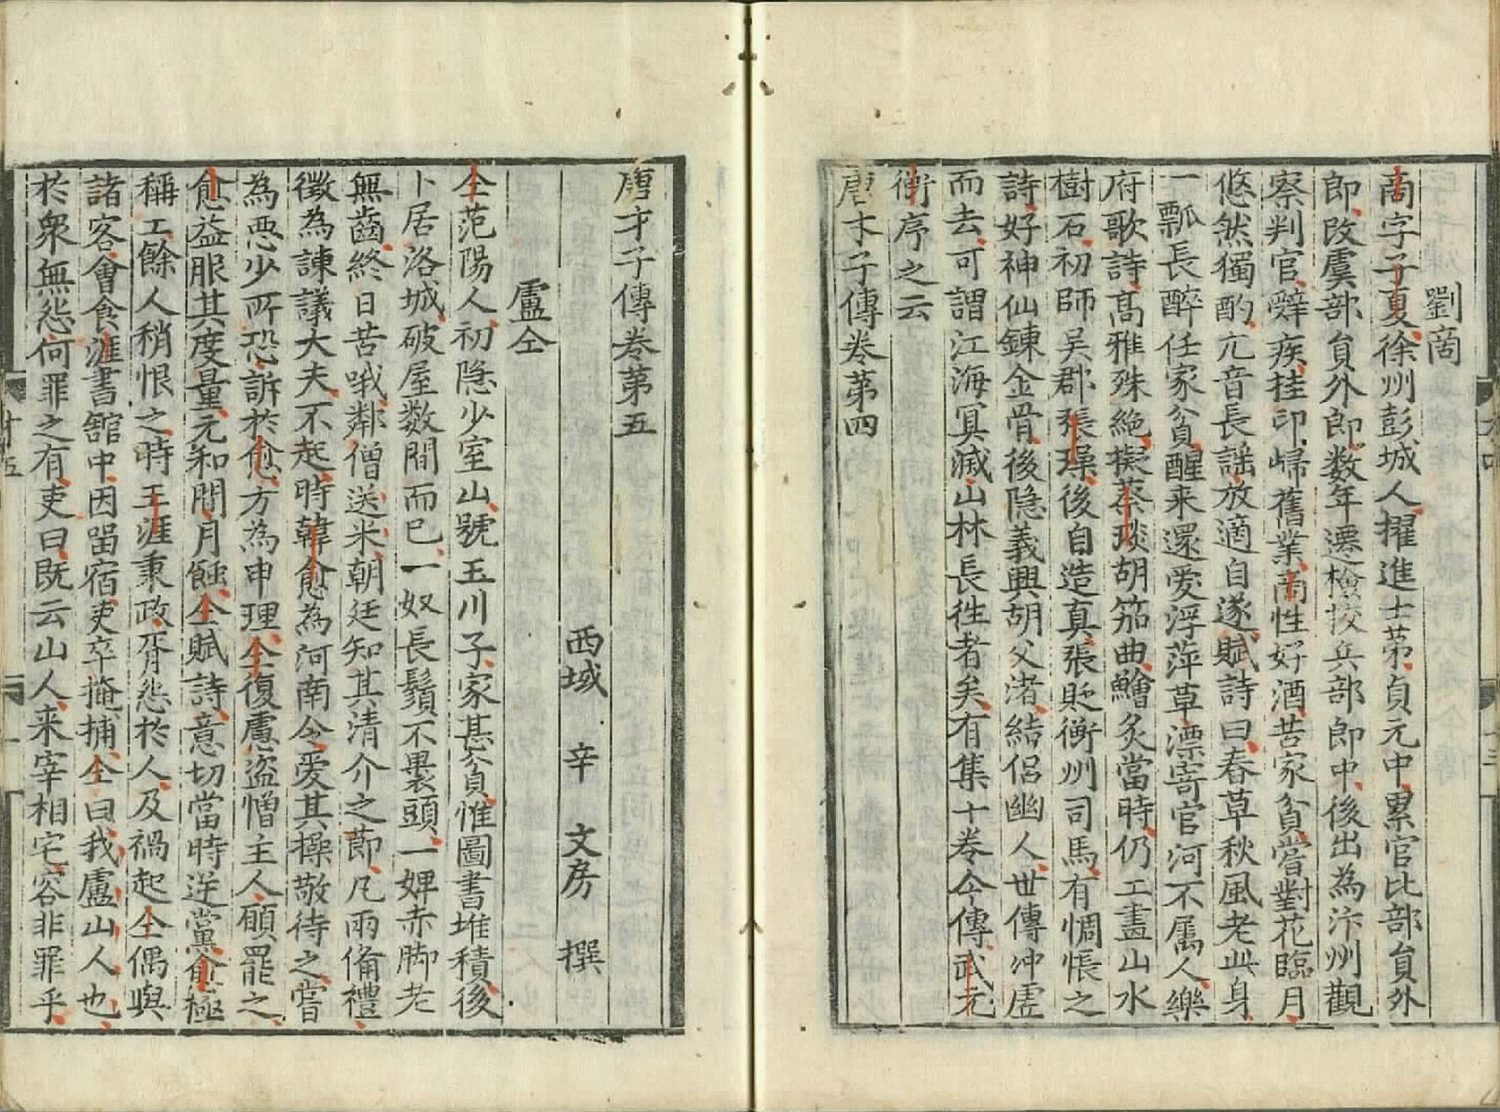 劉商
商字子夏徐州彭城人擢進士第貞元中累官比部員外
郎改虞部員外郎数年遷檢挍兵部郎中後出為汴州觀
察判官辤疾挂印歸舊業商性好酒苦家貧甞對花臨月
悠然獨酌亢音長謡放適自遂賦詩曰春草秋風老此身
一瓢長醉任家貧醒来還愛浮萍草漂寄官河不属人樂
府歌詩髙雅殊絶擬蔡琰胡笳曲鱠炙當時仍工畫山水
樹石初師吴郡張璪後自造真張貶衡州司馬有惆悵之
詩好神仙鍊金骨後隐義興胡父渚結侣幽人世傳冲虗
而去可謂江海冥滅山林長徃者矣有集十卷今傳武元
衡序之云
唐才子傳卷第四
唐才子傳卷第五
西域 辛 文房 撰
盧仝
仝范陽人初隐少室山號玉川子家甚貧惟圖書堆積後
卜居洛城破屋数間而已一奴長鬚不裹頭一婢赤脚老
無齒終日苦哦鄰僧送米朝廷知其清介之節凡兩備禮
徴為諌議大夫不起時韓愈為河南令愛其操敬待之嘗
為悪少所恐訴於愈方為申理仝復慮盗憎主人願罷之
愈益服其度量元和間月蝕仝賦詩意切當時逆黨愈極
稱工餘人稍恨之時王涯秉政胥怨於人及禍起仝偶與
諸客會食涯書館中因畱宿吏卒掩捕仝曰我盧山人也
於衆無怨何罪之有吏曰既云山人来宰相宅容非罪乎